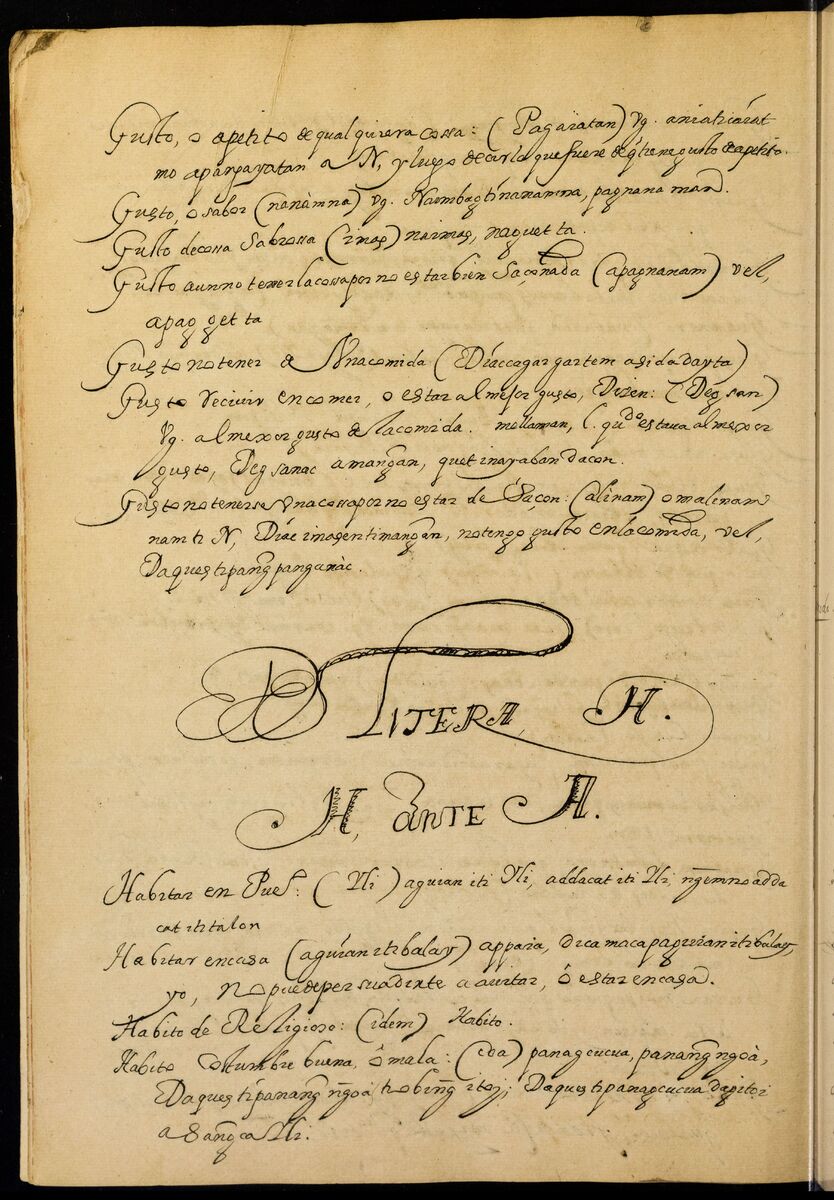 Gusto, o apetito de qualquiera cossa: (Pagaiatan) Vg.
mo aparpayatan a N, y luego decirla que fuere de q̃ tiene gusto o apetito.
Gusto, o sabor (nanàmna) Vg. Naimbagtinanamna, pagnanamnan.
Gusto decossa sabrossa (inas) naimas, naguetta.
Gusto aunno tenerlacossapor no estarbien saçonada (apagnanam) vel,
apag getta
Gusto notener de Vnacomida (Diaccagargartem asidadayta)
Gusto recivir encomer, o estar almejor gusto, Dizen: (Degsan)
Vg. almexor gusto de lacomida. mellaman, l. qudo estaua almexor
gusto, Degsanac amangan, quet inayabandacon.
Gusto notenerse Vnacossapor no estar de Saçon: (alinam) o malinam
nam ti N, Diac imasentimangan, notengo gusto enlacomida, vel,
Daques tipang̃panganàc.
LITERA, H.
H, ante A.
Habitar en Puel: (Yli) aguian iti Yli, addacat iti Yli, ng̃emno adda
cat ititalon
Habitar encasa (aguian itibalay) appaia, dica macapaguian itibalay,
yo, no puedeper suadirte a auitar, ô estar encasa.
Habito de Religioso: (idem) Habito.
Habito Costumbre buena, ô mala: (eda) panagcucua, panang̃ng̃oà,
Daques tipanang̃ng̃oà tiobing̃ itoy; Daquestipanagcucua dagitoi
a sang̃ca Yli.